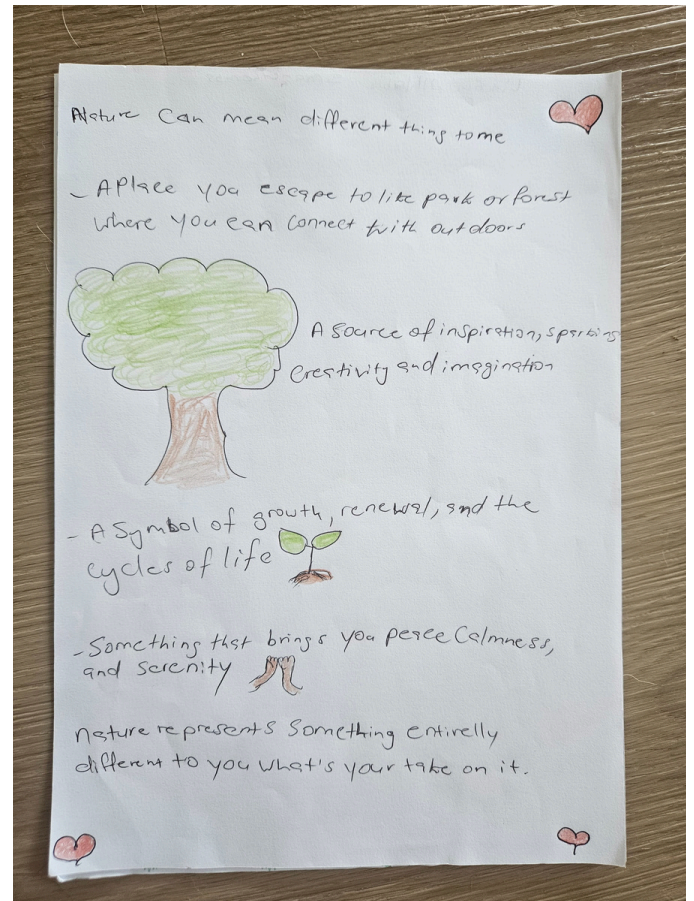 Nature Can mean different thing to me
- A Place you escape to like park or forest
where you can connect with outdoors
A source of inspiration, sparking
creativity and imagination
- A Symbol of growth, renewal, and the
cycles of life
- Something that brings you peace Calmness,
and serenity
nature represents something entirelly
different to you what's your take on it.